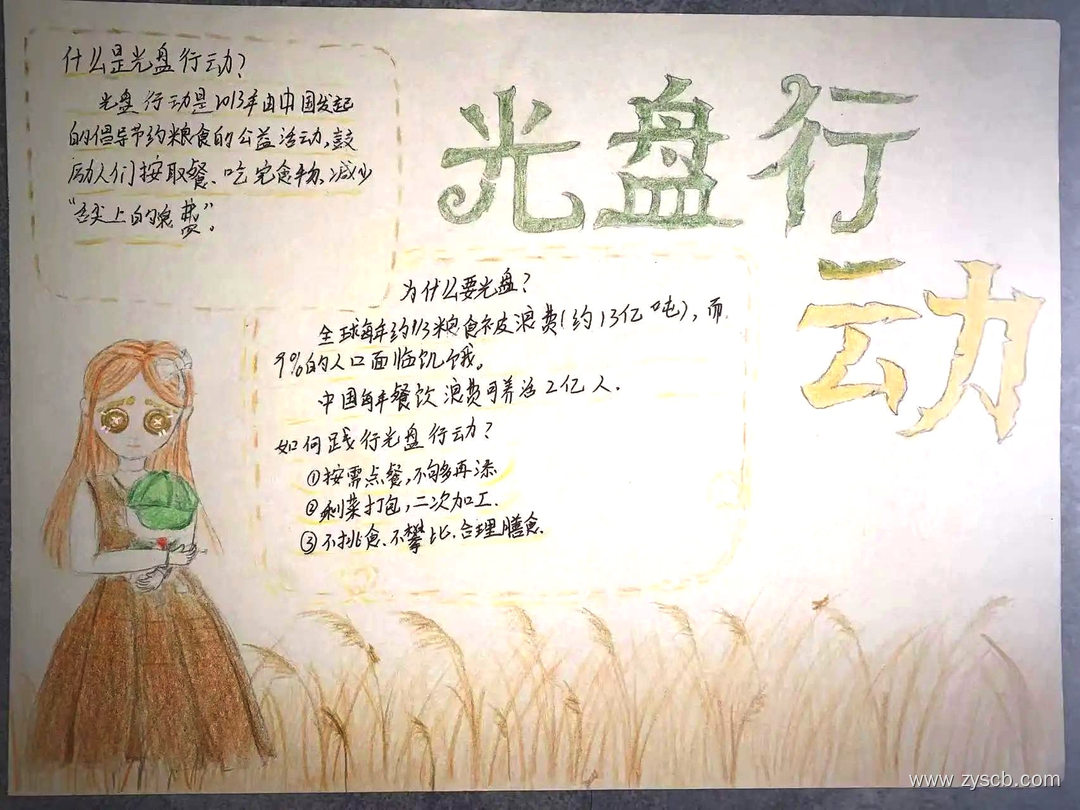 光盘行
动
什么是光盘行动?
光盘行动是2013年由中国发起
的倡导节约粮食的公益活动,鼓
励人们按取餐、吃完食物、减少
“舌尖上的浪费”。
为什么要光盘?
全球每年约1/3粮食被浪费(约13亿吨),而
9%的人口面临饥饿。
中国每年餐饮浪费可养活2亿人.
如何践行光盘行动?
①按需点餐,不够再添
②剩菜打包,二次加工.
③不挑食、不攀比、合理膳食.
www.zyscb.com